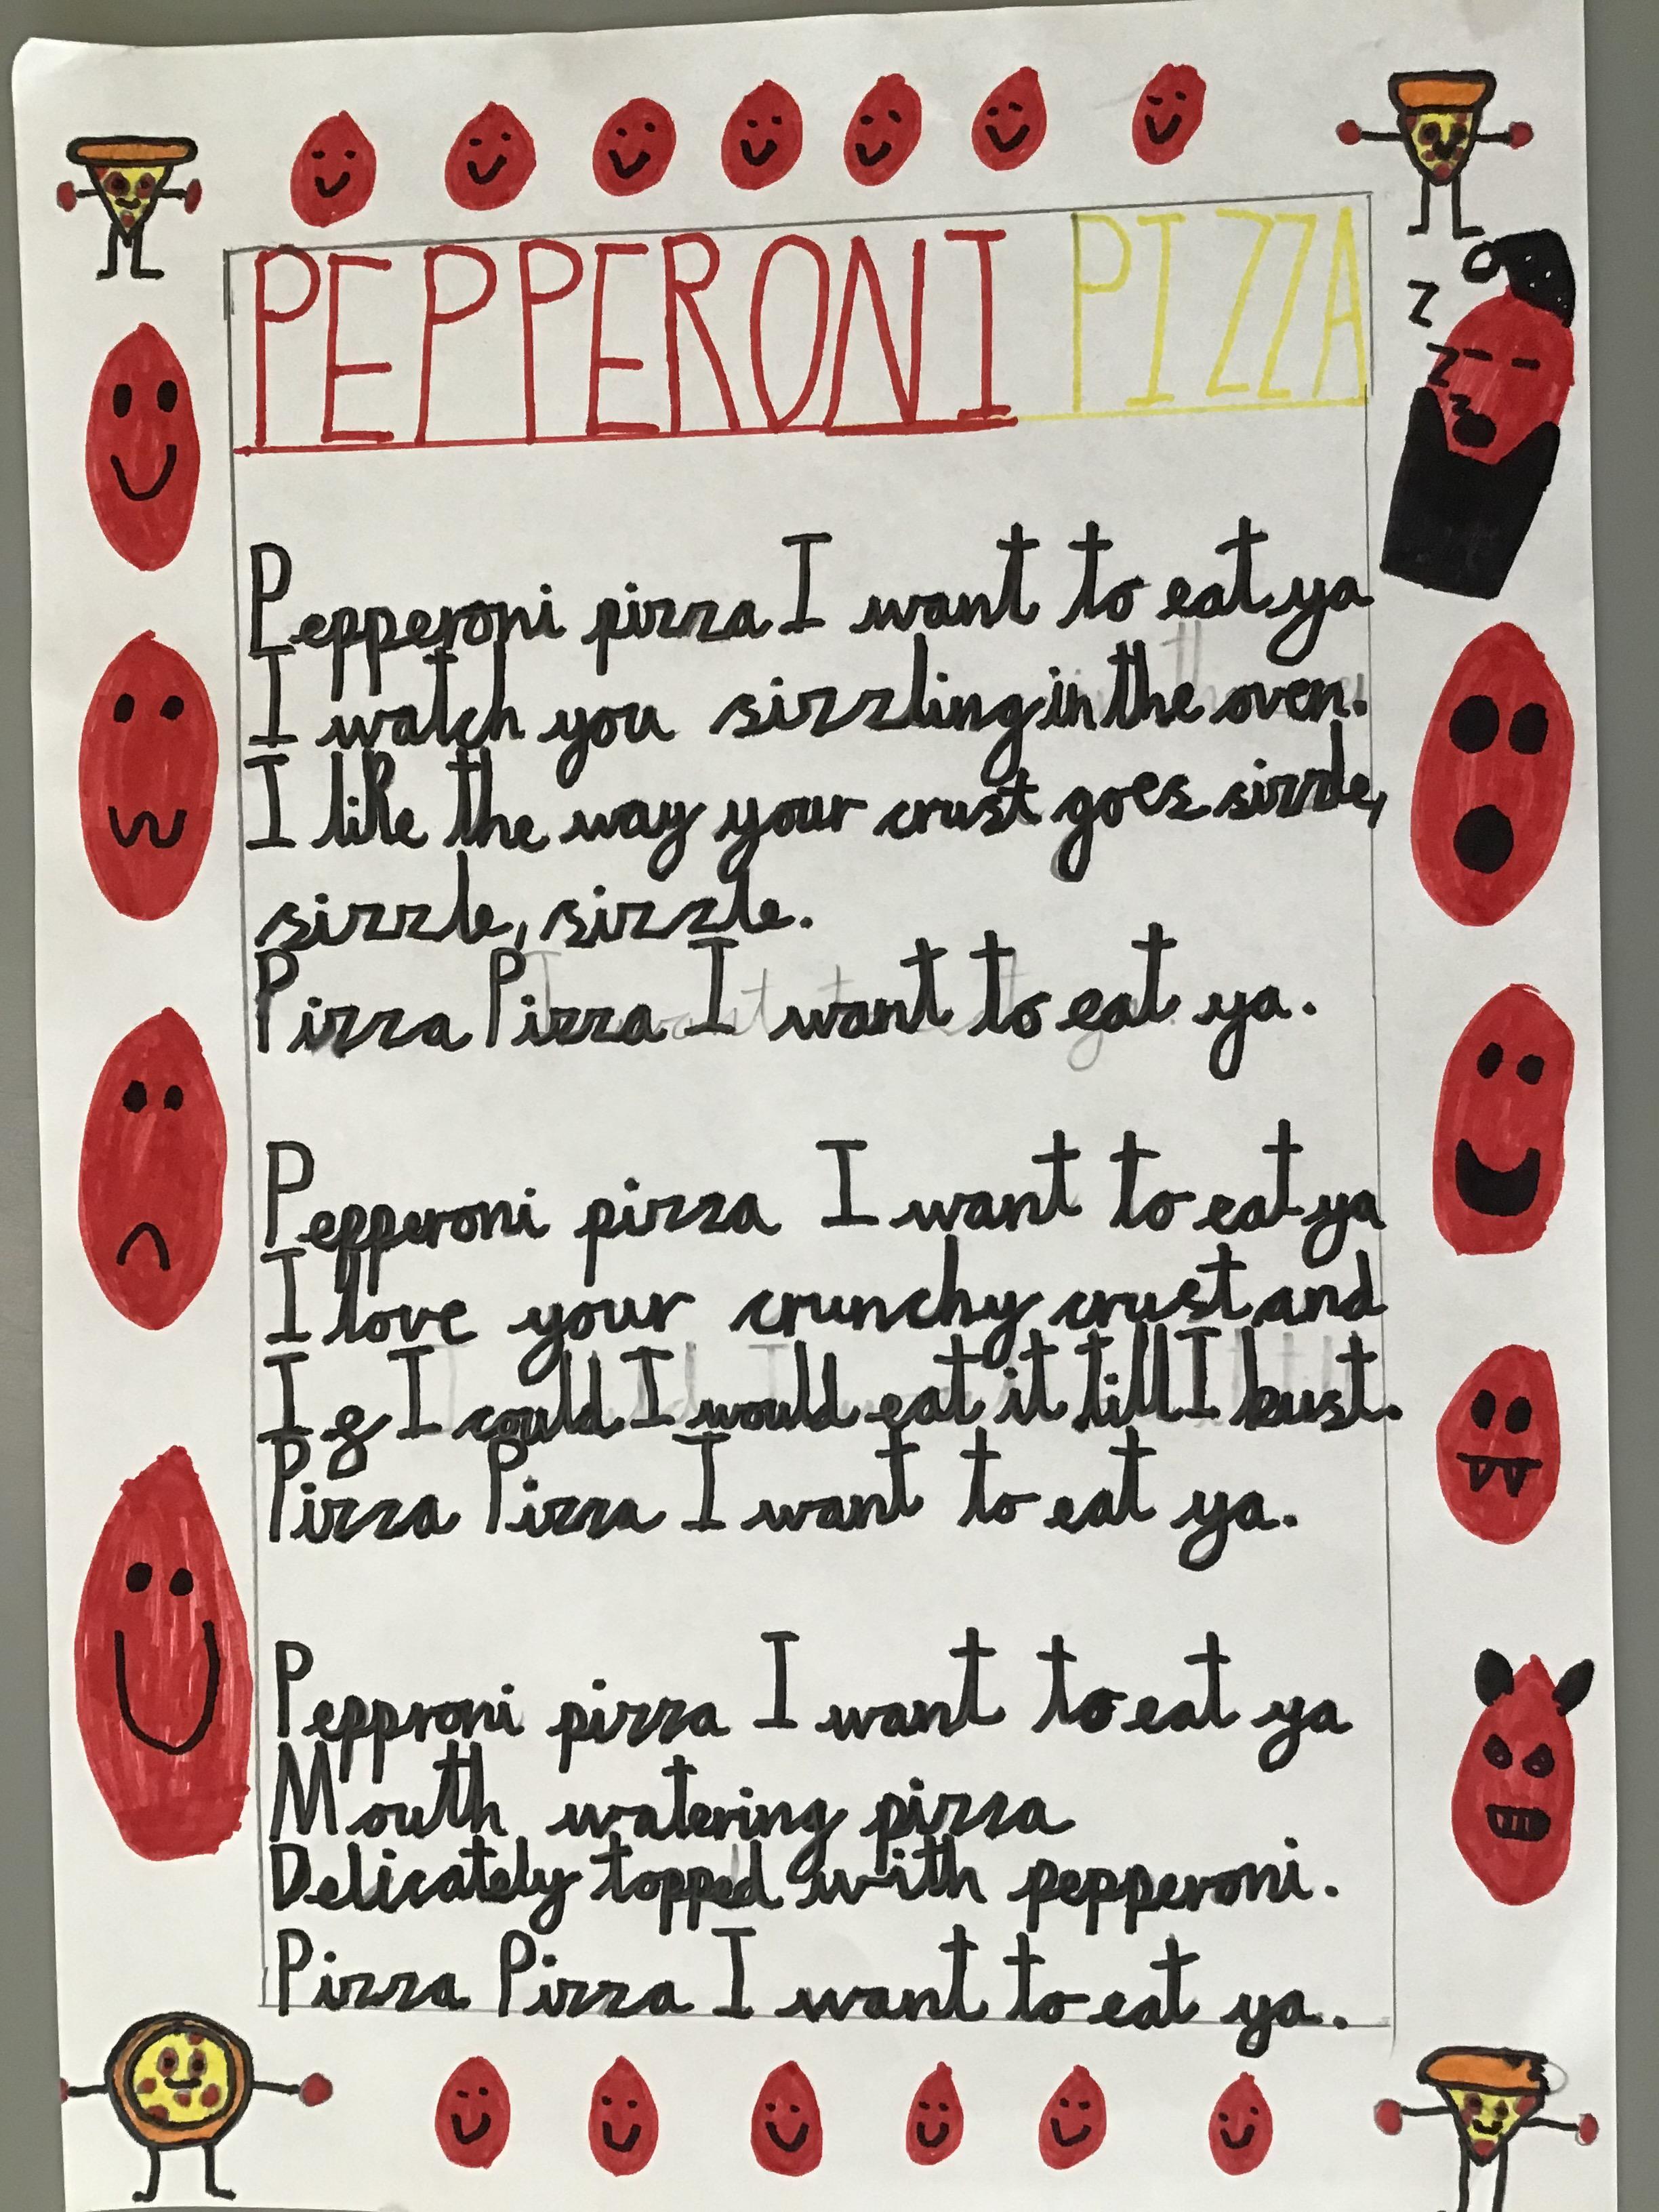 PEPPERONI PIZZA
Z
Z
Z
Pepperoni pizza I want to eat ya
I watch you sizzling in the oven.
I like the way your crust goes sizzle,
sizzle, sizzle.
Pizza Pizza I want to eat ya.
Pepperoni pizza I want to eat ya
I love your crunchy crust and
If I could I would eat it till I bust.
Pizza Pizza I want to eat ya.
Pepproni pizza I want to eat ya
Mouth watering pizza
Delicately topped with pepperoni.
Pizza Pizza I want to eat ya.